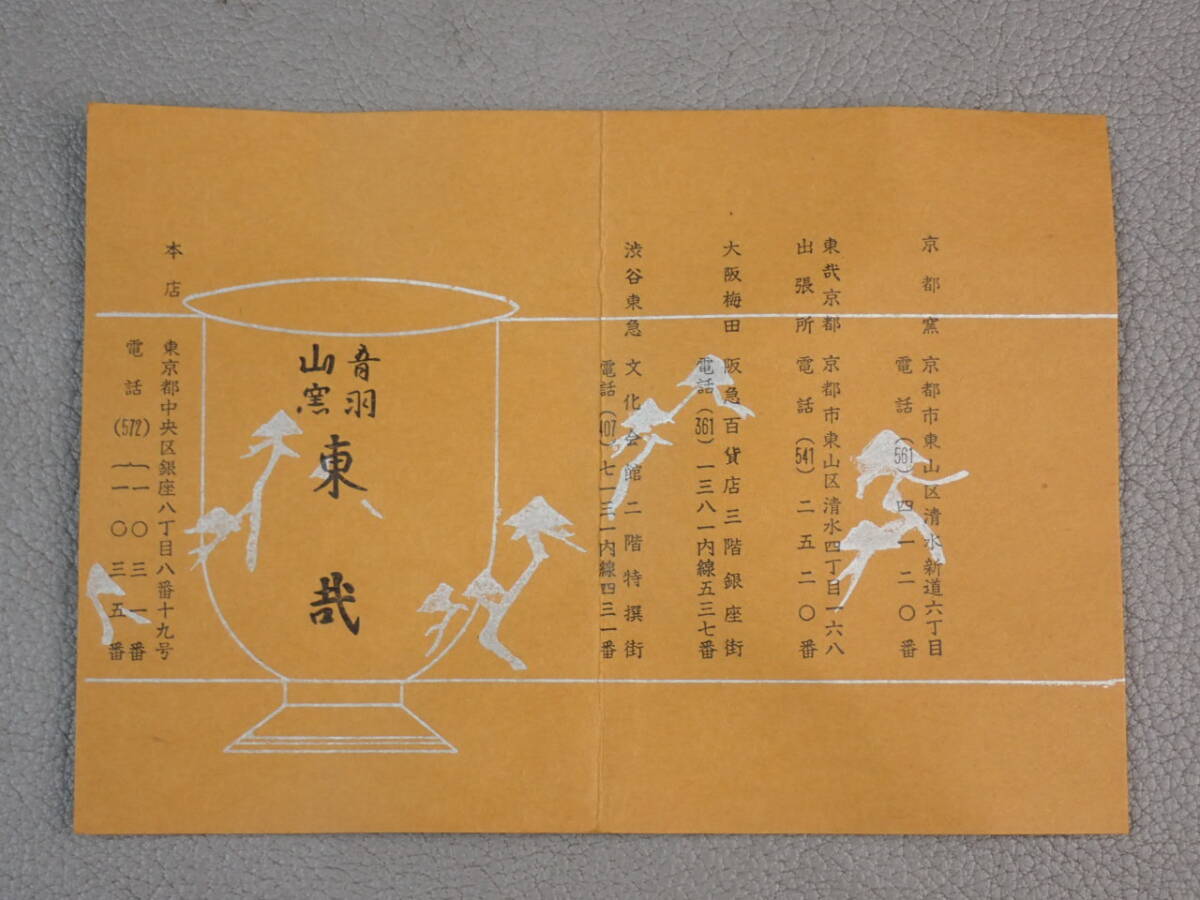 京都窯 京都市東山区清水新道六丁目
電話(561)四一二〇番
東哉京都 京都市東山区清水四丁目一六八
出張所 電話(541)二五二〇番
大阪梅田 阪急百貨店三階銀座街
電話(361)一三八一内線五三七番
渋谷東急 文化会館二階特撰街
電話(407)七一三一内線四三一番
音羽
山窯
東哉
本店 東京都中央区銀座八丁目八番十九号
電話(572)一〇三一番
一〇三五番